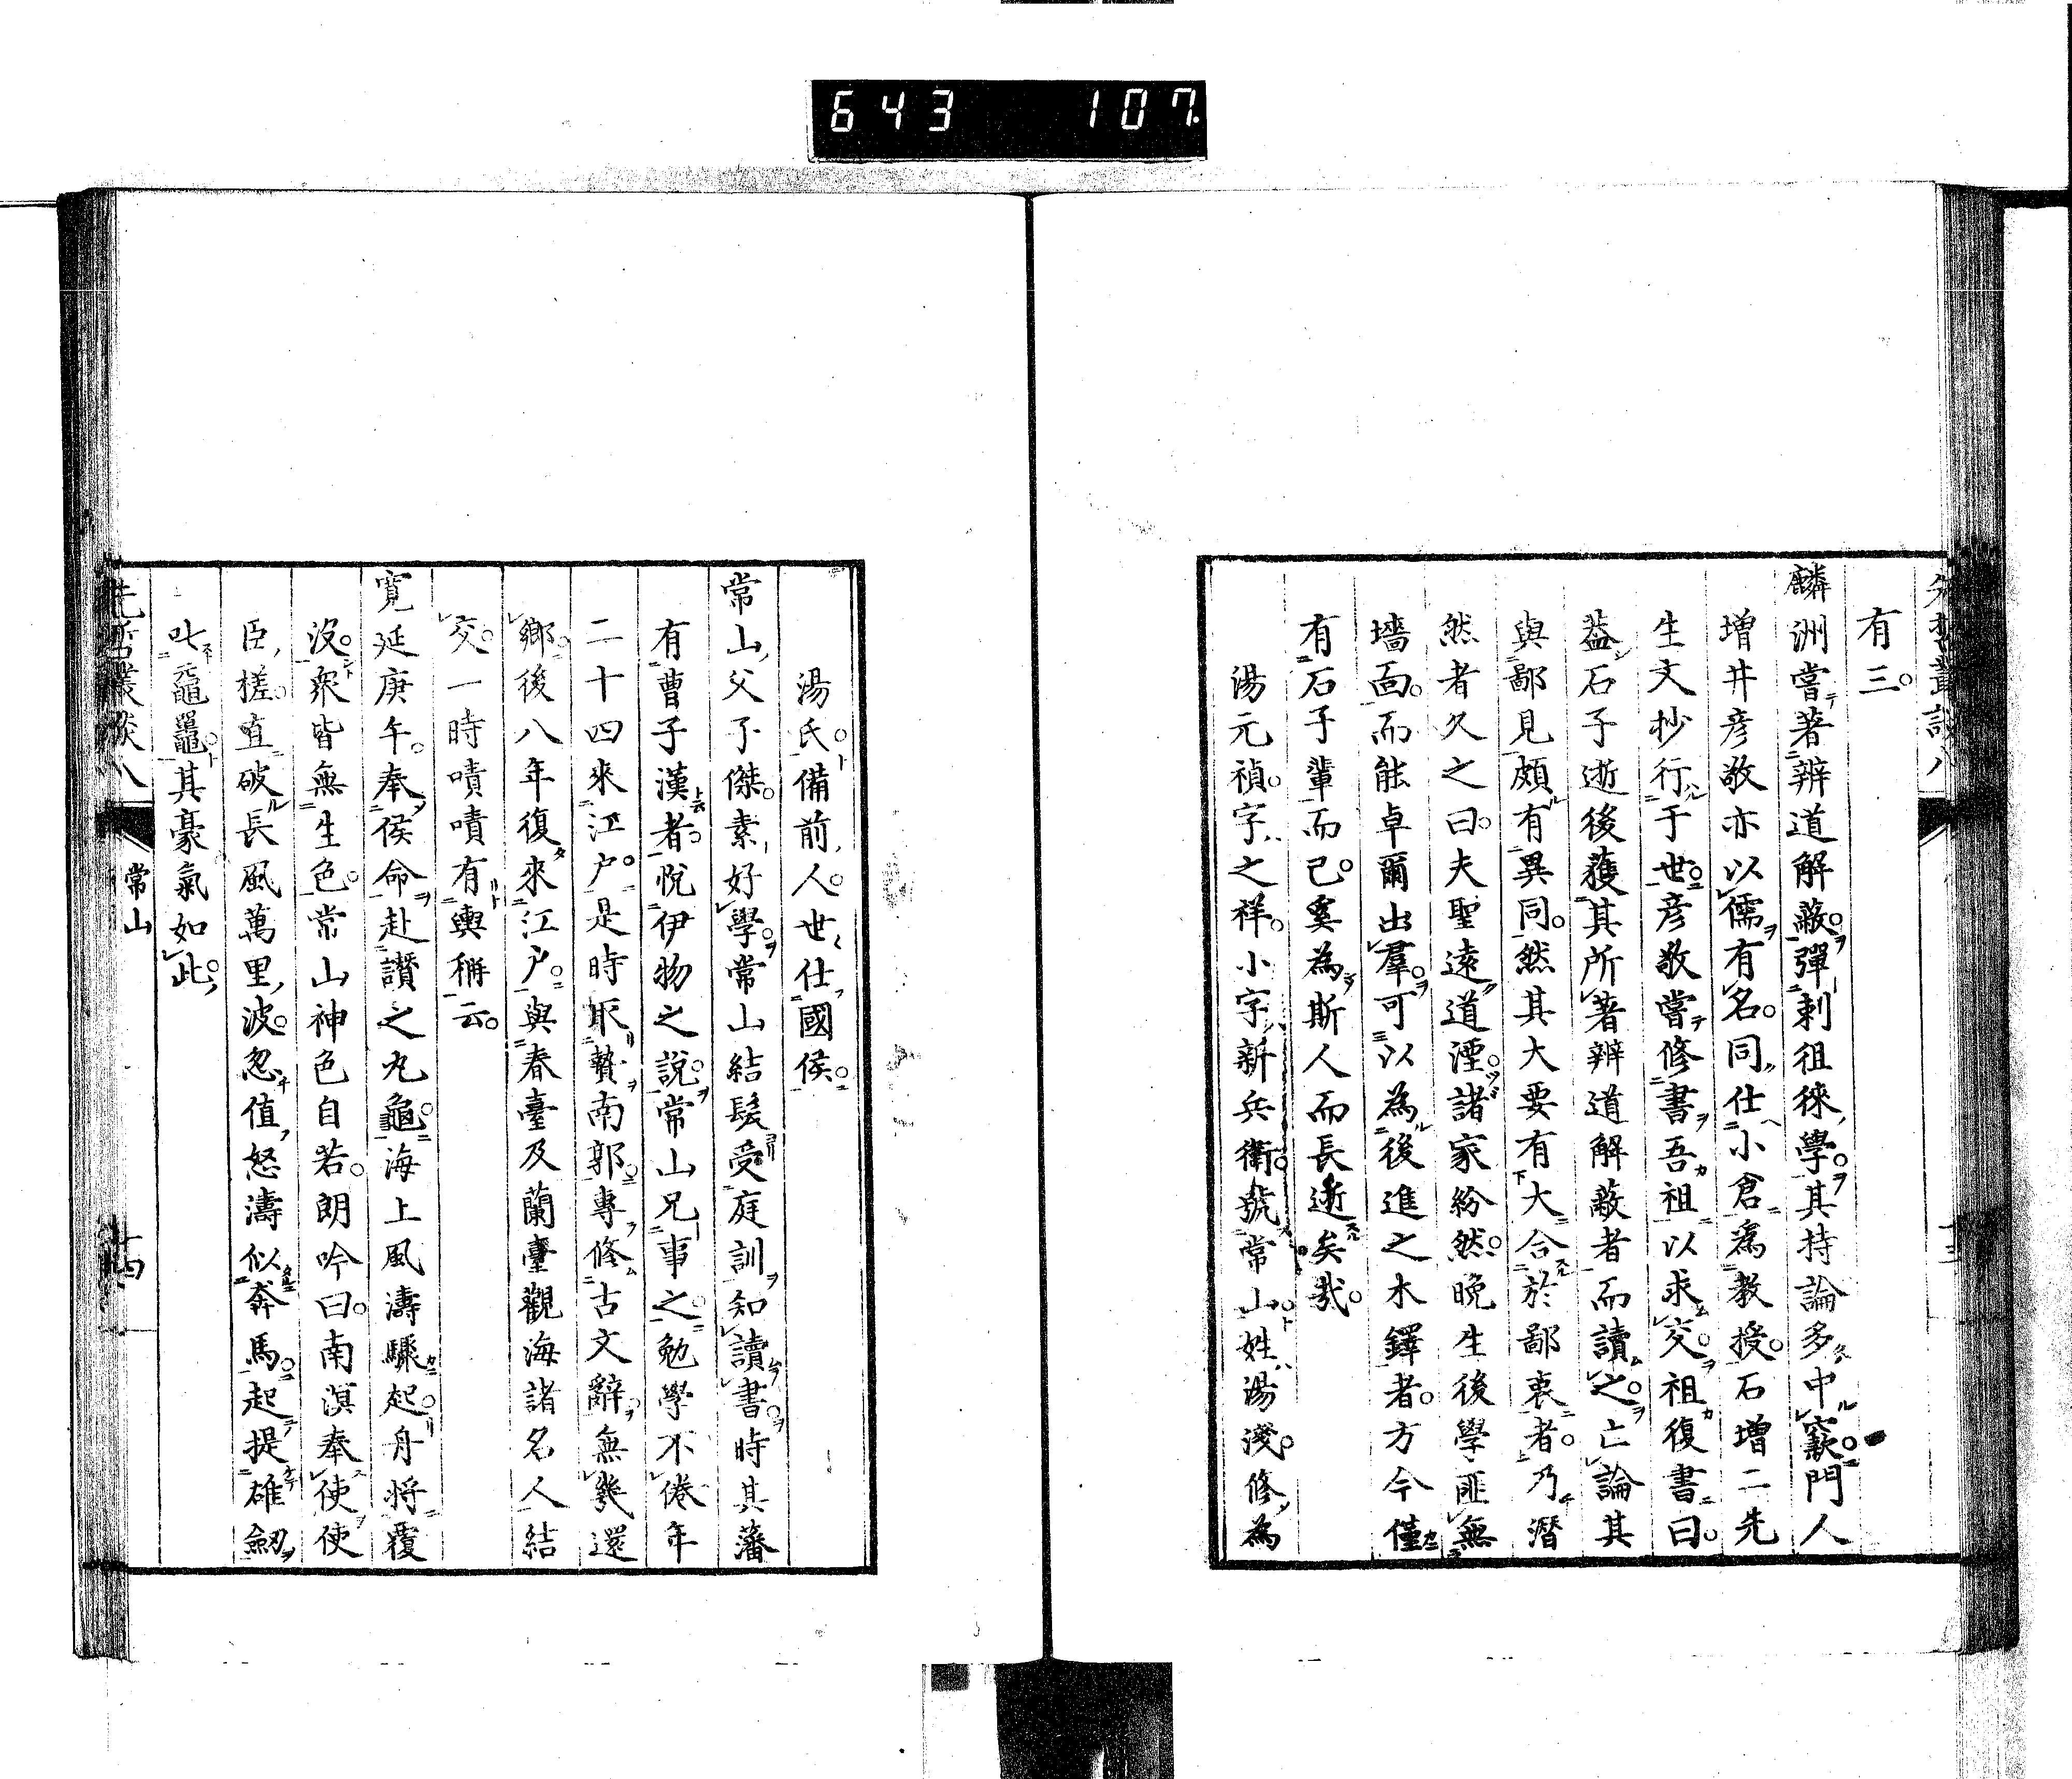 643 107
有三。
麟洲嘗著辨道解蔽。彈剌徂徠學。其持論多中窾。門人
增井彥敬亦以儒有名。同仕小倉爲教授。石增二先
生文抄行于世。彥敬嘗修書吾祖以求交。祖復書曰。
葢石子逝後獲其所著辨道解蔽者而讀之。亡論其
與鄙見頗有異同。然其大要有大合於鄙衷者。乃潛
然者久之曰。夫聖遠道湮。諸家紛然。晚生後學匪無
墻面。而能卓爾出羣。可以為後進之木鐸者。方今僅
有石子輩而已。奚為斯人而長逝矣哉。
湯元禎。字之祥。小字新兵衛。號常山。姓湯淺。修為
湯氏。備前人。世仕國侯。
常山父子傑。素好學。常山結髮受庭訓知讀書。時其藩
有曹子漢者。悅伊物之說。常山兄事之。勉學不倦。年
二十四來江戶。是時取贄南郭。專修古文辭。無幾還
鄉。後八年復來江戶。與春臺及蘭臺觀海諸名人結
交。一時嘖嘖有輿稱云。
寬延庚午。奉侯命赴讃之丸龜。海上風濤驟起。舟將覆
沒。衆皆無生色。常山神色自若。朗吟曰。南溟奉使使
臣槎。直破長風萬里波。忽值怒濤似奔馬。起提雄劒
叱黿鼉。其豪氣如此。
先哲叢談八
常山
十四